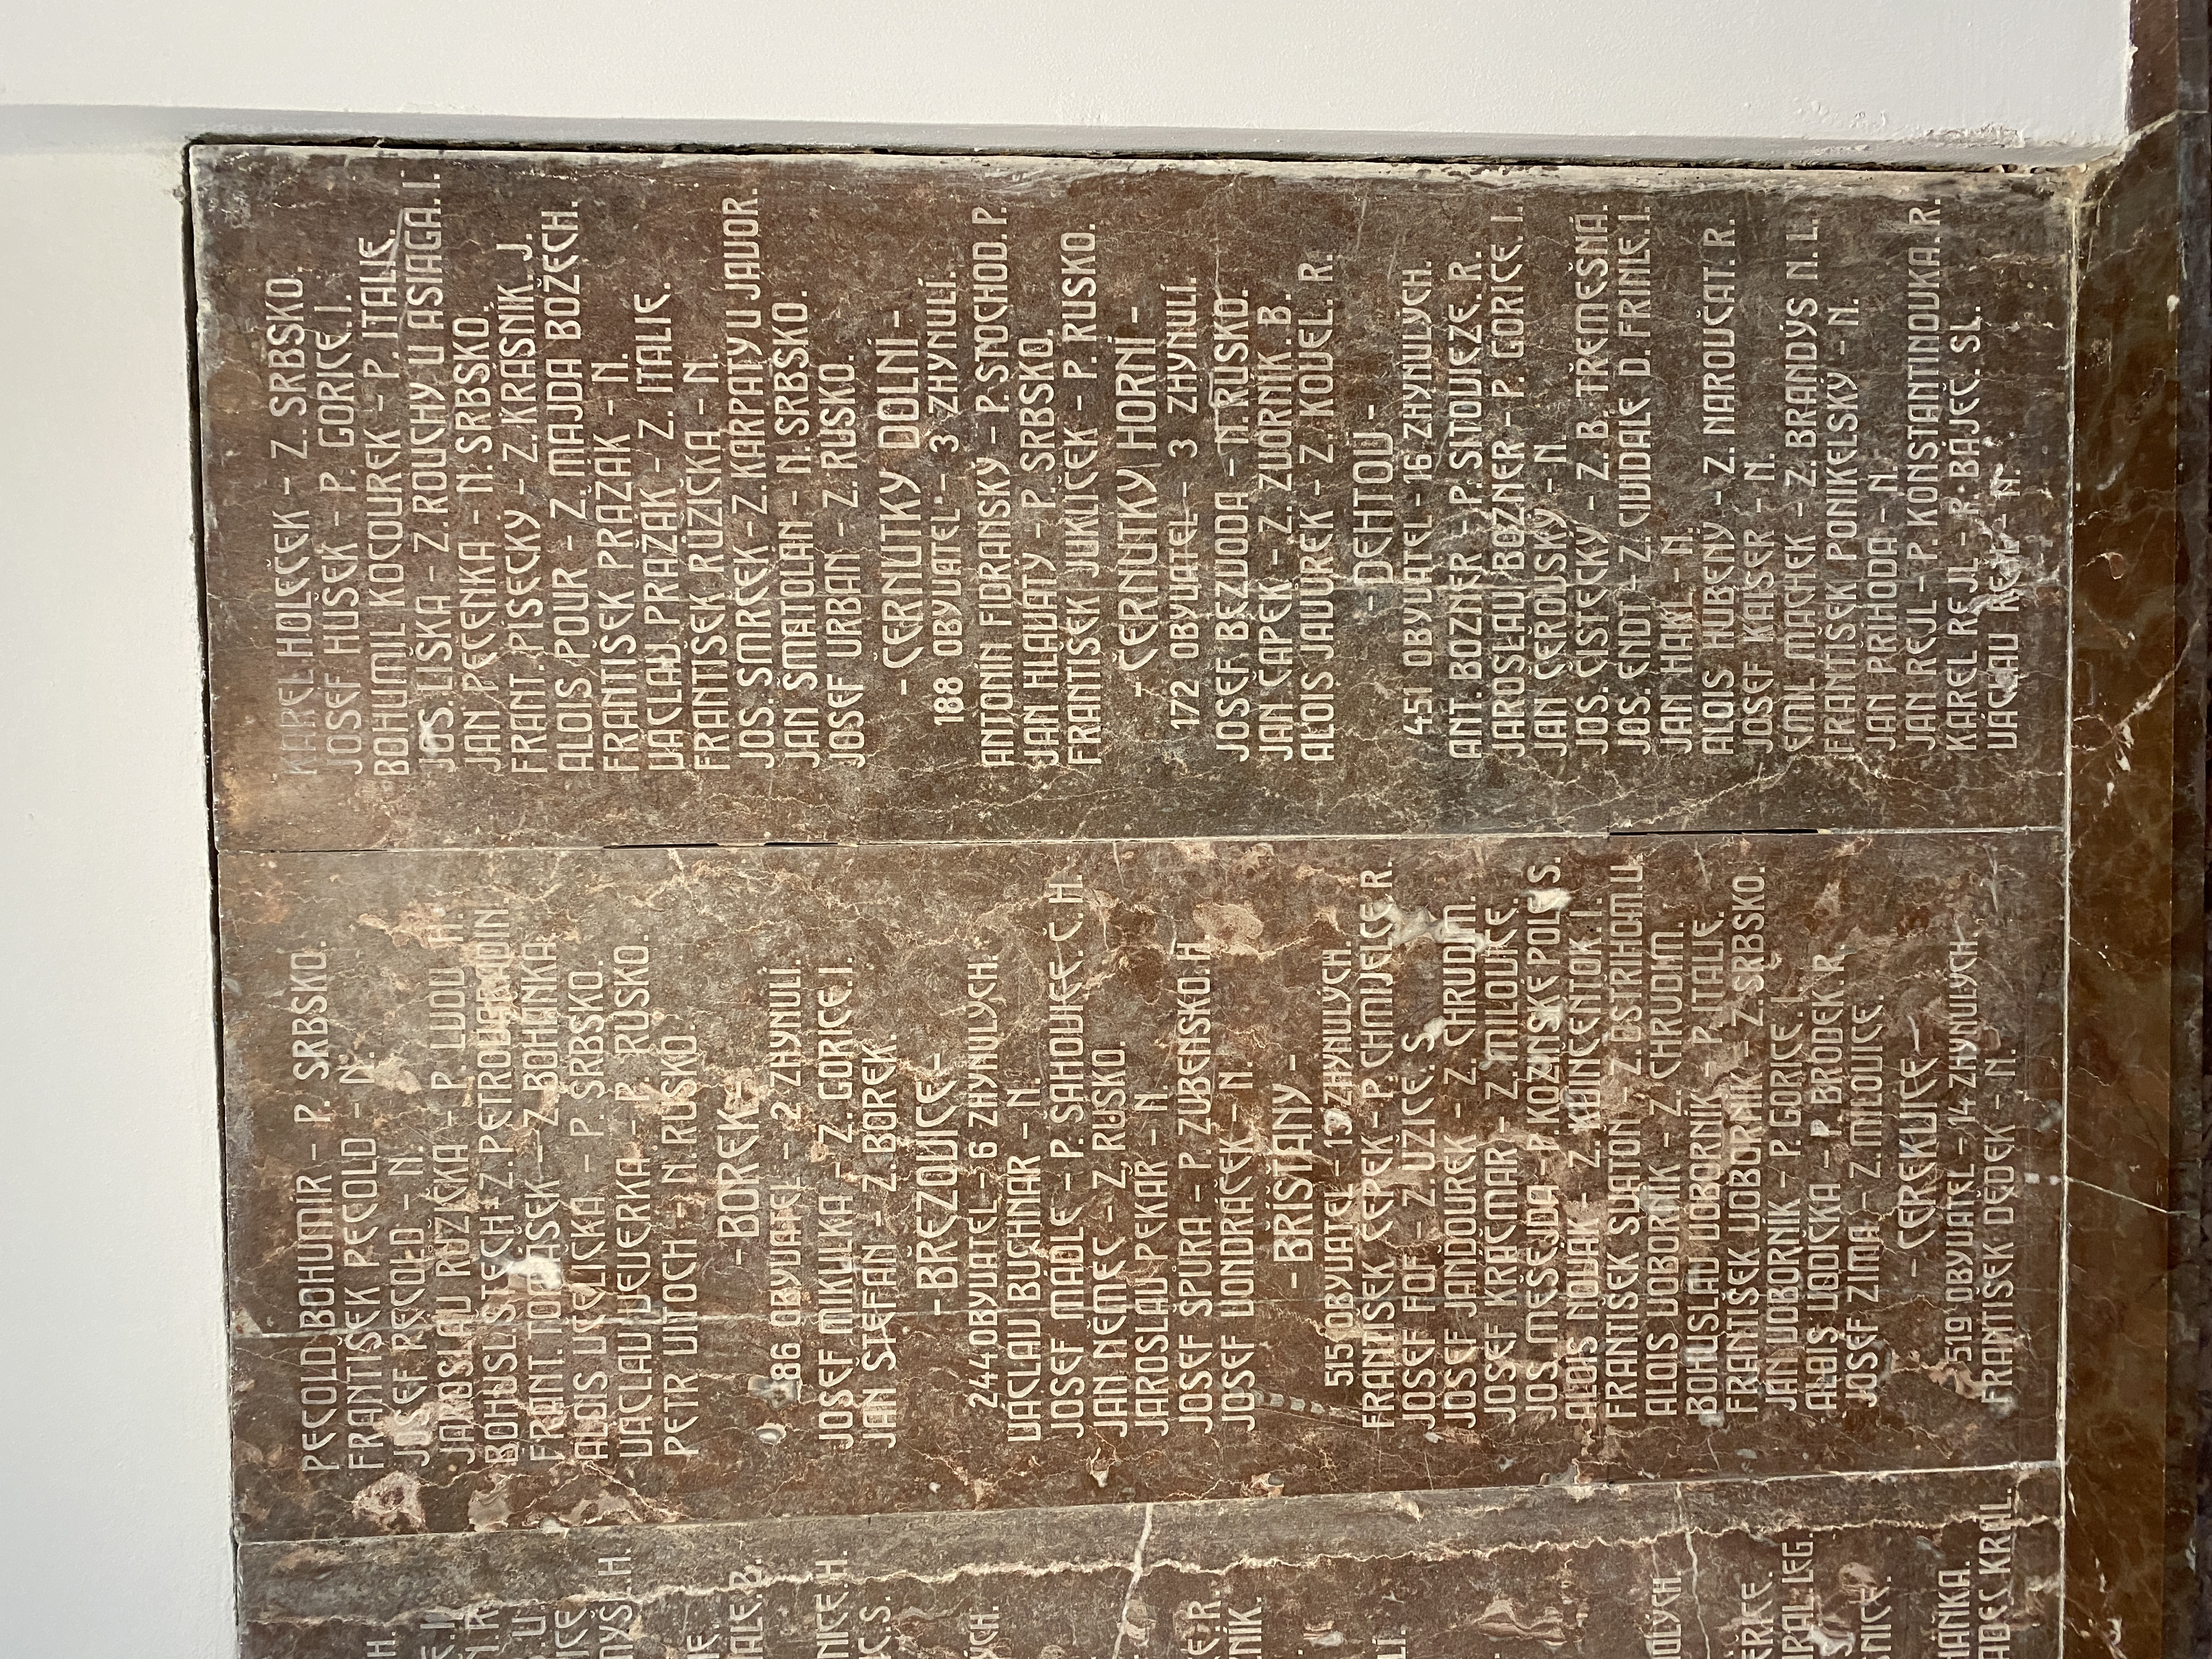 KRÁL.
PECOLD BOHUMÍR - P. SRBSKO.
FRANTIŠEK PECOLD - N.
JOSEF PECOLD - N.
JAROSLAV RŮŽIČKA - P. LVOV H.
BOHUSL. ŠTĚCH - Z. PETROVARADÍN.
FRANT. TOMÁŠEK - Z. BOHÁNKA.
ALOIS VESELIČKA - P. SRBSKO.
VÁCLAV VEVERKA - P. RUSKO.
PETR VITOCH - N. RUSKO.
- BOREK -
86 OBYVATEL - 2 ZHYNULÍ.
JOSEF MIKULKA - Z. GORICE. I.
JAN ŠTEFAN - Z. BOREK.
- BŘEZOVICE -
244 OBYVATEL - 6 ZHYNULÝCH.
VÁCLAV BUCHNAR - N.
JOSEF MÁDLE - P. SAHOVICE. Č. H.
JAN NĚMEC - Z. RUSKO.
JAROSLAV PEKAŘ - N.
JOSEF ŠPŮRA - P. ZUBENSKO. H.
JOSEF VONDRÁČEK - N.
- BŘÍŠŤANY -
515 OBYVATEL - 13 ZHYNULÝCH.
FRANTIŠEK ČEPEK - P. CHMIJELCE R.
JOSEF FOF - Z. UŽICE. S.
JOSEF JANDOUREK - Z. CHRUDIM.
JOSEF KRAČMAR - Z. MILOVICE.
JOS. MEŠEJDA - P. KOZINSKÉ POLE S.
ALOIS NOVÁK - Z. KVINCENTOK I.
FRANTIŠEK SVATOŇ - Z. OSTŘIHOM. U.
ALOIS VOBORNÍK - Z. CHRUDIM.
BOHUSLAV VOBORNÍK - P. ITALIE.
FRANTIŠEK VOBORNÍK - Z. SRBSKO.
JAN VOBORNÍK - P. GORICE. I.
ALOIS VODIČKA - P. BRODEK. R.
JOSEF ZIMA - Z. MILOVICE.
- CEREKVICE -
519 OBYVATEL - 14 ZHYNULÝCH.
FRANTIŠEK DĚDEK - N.
KAREL HOLEČEK - Z. SRBSKO.
JOSEF HUŠEK - P. GORICE. I.
BOHUMIL KOCOUREK - P. ITALIE.
JOS. LIŠKA - Z. ROVCHY U ASIAGA. I.
JAN PEČENKA - N. SRBSKO.
FRANT. PÍSECKÝ - Z. KRASNIK. J.
ALOIS POUR - Z. MAJDA BOŽECH.
FRANTIŠEK PRAŽÁK - N.
VÁCLAV PRAŽÁK - Z. ITALIE.
FRANTIŠEK RŮŽIČKA - N.
JOS. SMRČEK - Z. KARPATY U JAVOR.
JAN ŠMATOLAN - N. SRBSKO.
JOSEF URBAN - Z. RUSKO.
- ČERNUTKY DOLNÍ -
188 OBYVATEL - 3 ZHYNULÍ.
ANTONÍN FIDRANSKÝ - P. STOCHOD. P.
JAN HLAVATÝ - P. SRBSKO.
FRANTIŠEK JUKLÍČEK - P. RUSKO.
- ČERNUTKY HORNÍ -
172 OBYVATEL - 3 ZHYNULÍ.
JOSEF BEZVODA - N. RUSKO.
JAN ČAPEK - Z. ZVORNÍK. B.
ALOIS JAVŮREK - Z. KOVEL. R.
- DEHTOV -
451 OBYVATEL - 16 ZHYNULÝCH.
ANT. BOZNER - P. SITOVJEZE. R.
JAROSLAV BOZNER - P. GORICE. I.
JAN ČEROVSKÝ - N.
JOS. ČISTECKÝ - Z. B. TŘEMEŠNÁ.
JOS. ENDT - Z. CIVIDALE D. FRINLE I.
JAN HAKL - N.
ALOIS HUBENÝ - Z. NAROVČAT. R.
JOSEF KAISER - N.
EMIL MACHEK - Z. BRANDÝS N. L.
FRANTIŠEK PONIKELSKÝ - N.
JAN PŘÍHODA - N.
JAN REJL - P. KONSTANTINOVKA. R.
KAREL REJL - P. BÁJEC. SL.
VÁCLAV REJL - N.